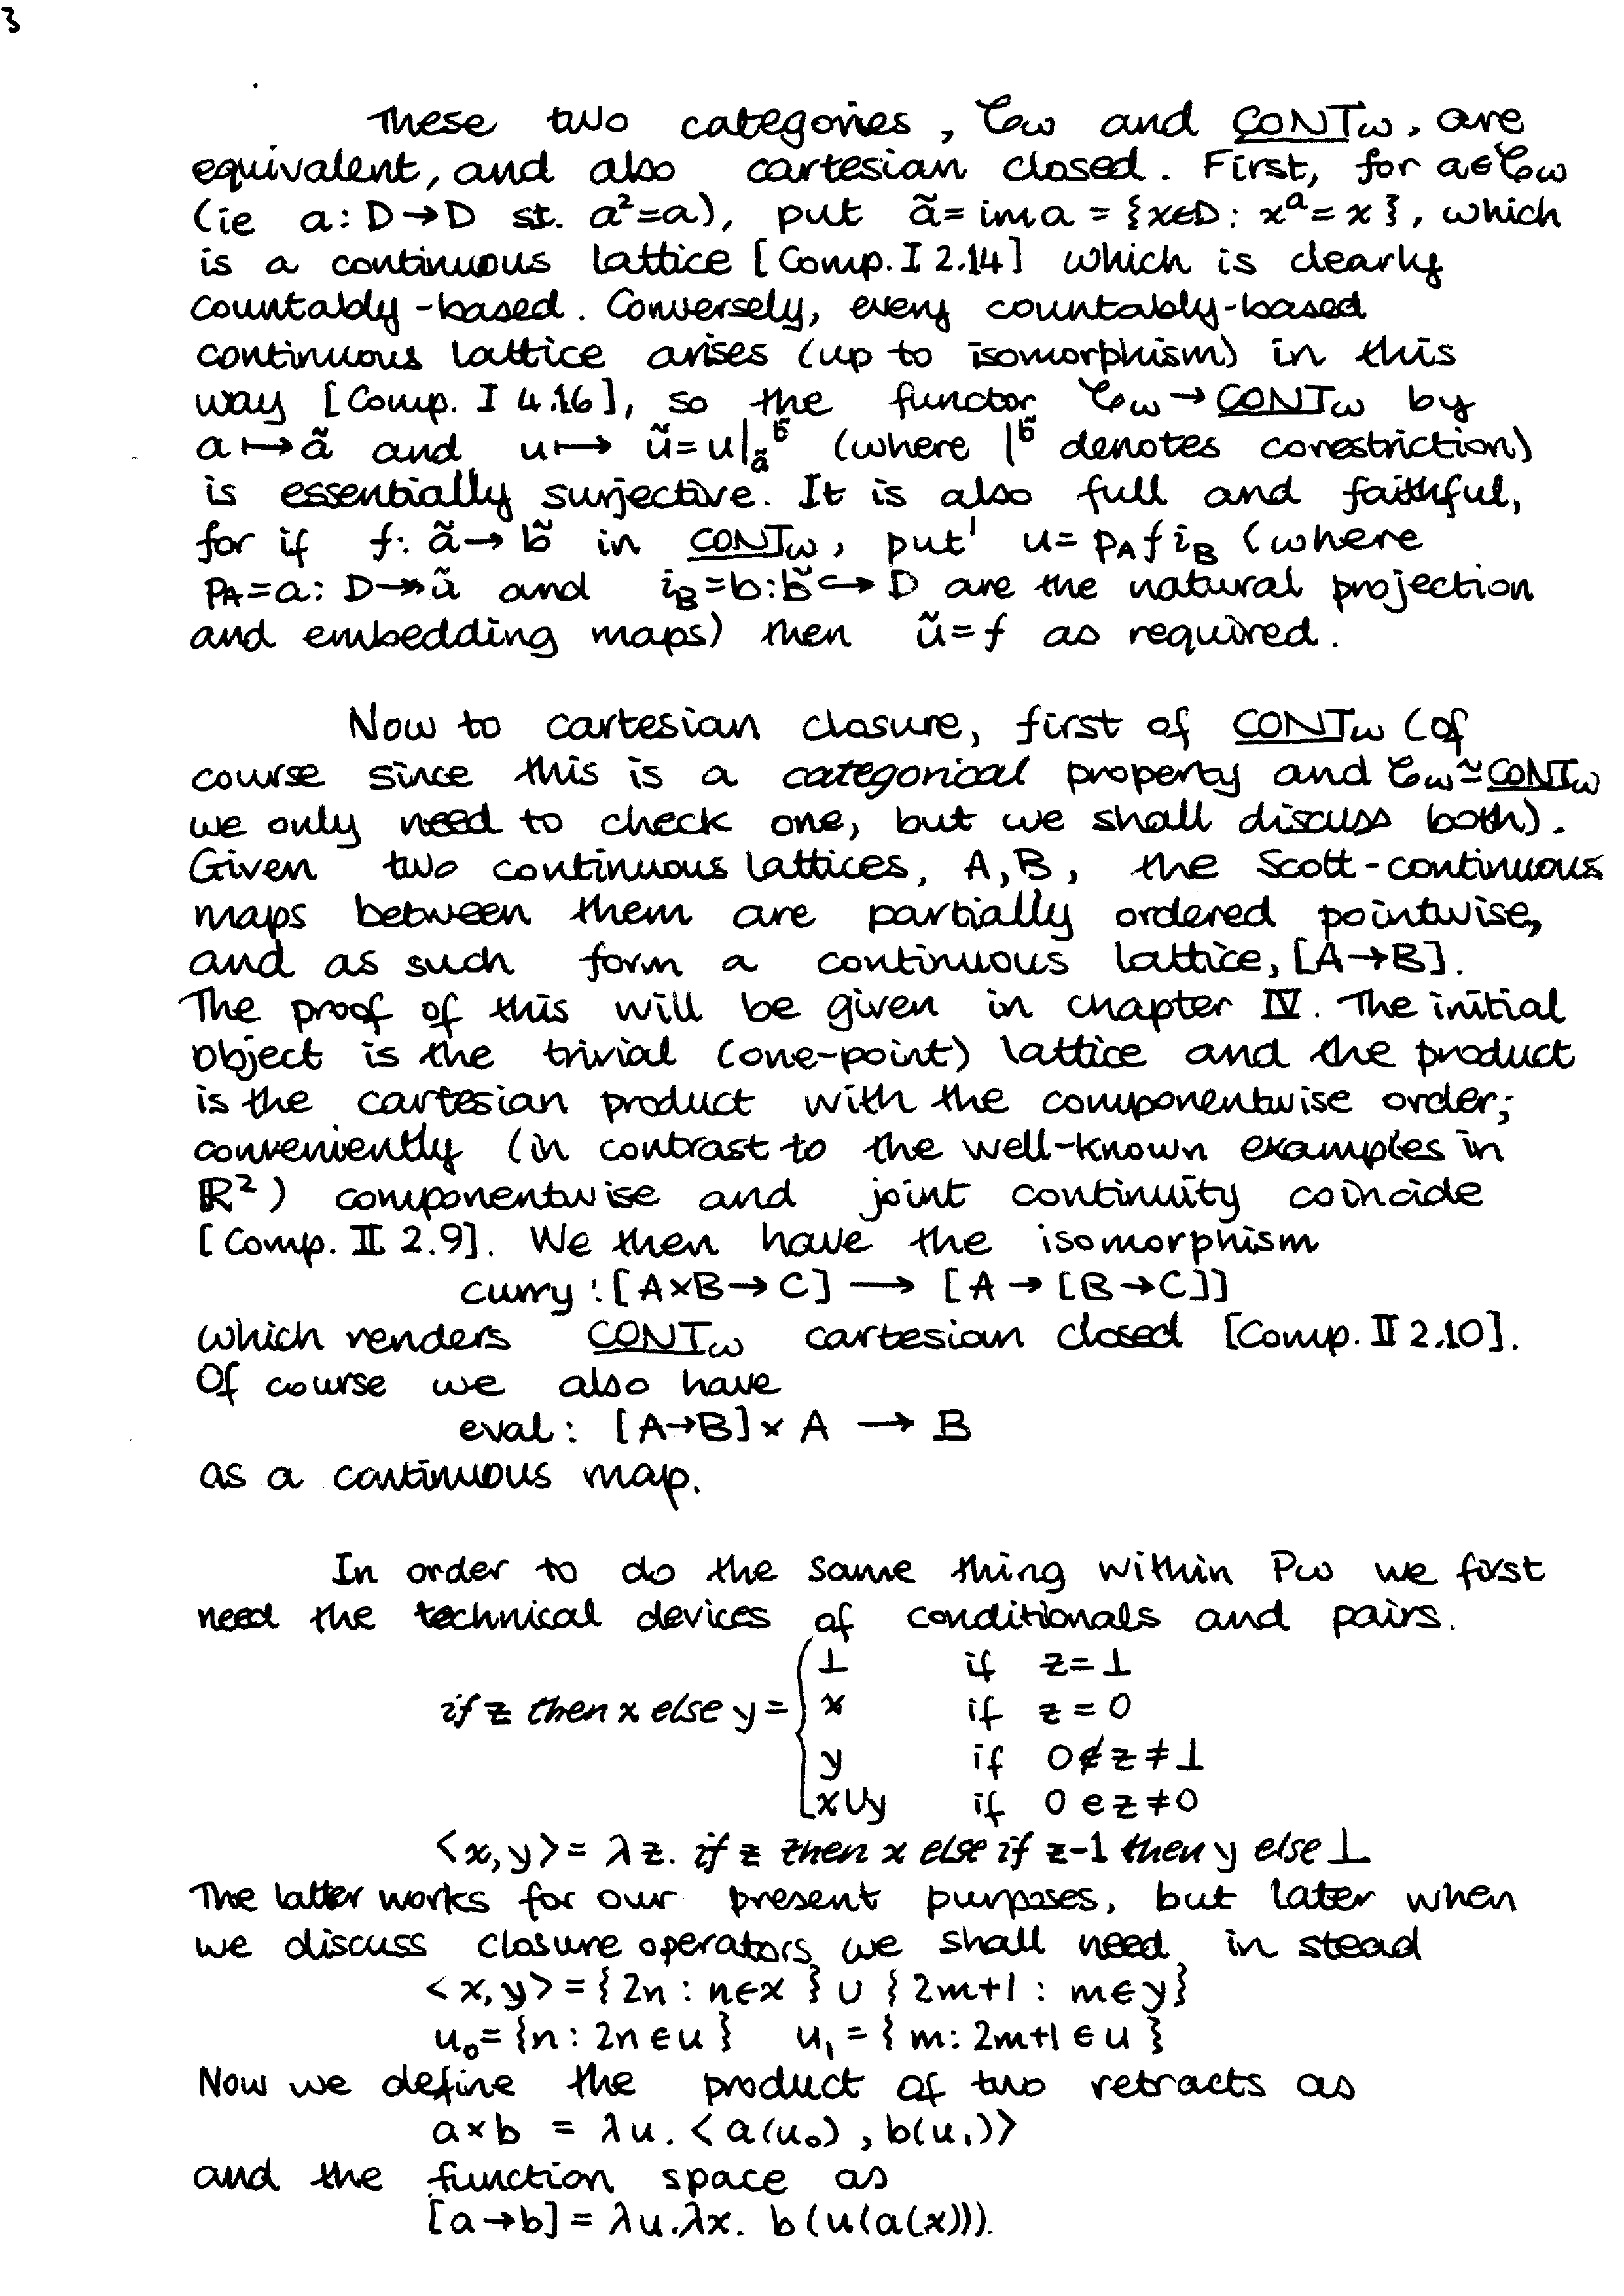 3
These two categories, 𝒞ω and CONTω, are
equivalent, and also cartesian closed. First, for a∈𝒞ω
(ie a: D→D st. a²=a), put ã = im a = {x∈D: xᵃ = x}, which
is a continuous lattice [Comp. I 2.14] which is clearly
countably-based. Conversely, every countably-based
continuous lattice arises (up to isomorphism) in this
way [Comp. I 4.16], so the functor 𝒞ω → CONTω by
a ↦ ã and u ↦ ũ = u|_ã^b̃ (where |^b̃ denotes corestriction)
is essentially surjective. It is also full and faithful,
for if f: ã → b̃ in CONTω, put' u = p_A f i_B (where
p_A = a: D ↠ ã and i_B = b: b̃ ↪ D are the natural projection
and embedding maps) then ũ = f as required.
Now to cartesian closure, first of CONTω (of
course since this is a categorical property and 𝒞ω ≃ CONTω
we only need to check one, but we shall discuss both).
Given two continuous lattices, A, B, the Scott-continuous
maps between them are partially ordered pointwise,
and as such form a continuous lattice, [A→B].
The proof of this will be given in chapter IV. The initial
object is the trivial (one-point) lattice and the product
is the cartesian product with the componentwise order;
conveniently (in contrast to the well-known examples in
ℝ²) componentwise and joint continuity coincide
[Comp. II 2.9]. We then have the isomorphism
curry : [A×B→C] ⟶ [A→[B→C]]
which renders CONTω cartesian closed [Comp. II 2.10].
Of course we also have
eval : [A→B]×A ⟶ B
as a continuous map.
In order to do the same thing within Pω we first
need the technical devices of conditionals and pairs.
if z then x else y = { ⊥ if z=⊥
x if z=0
y if 0∉z≠⊥
x∪y if 0∈z≠0
<x,y> = λz. if z then x else if z-1 then y else ⊥
The latter works for our present purposes, but later when
we discuss closure operators we shall need in stead
<x,y> = {2n : n∈x} ∪ {2m+1 : m∈y}
u₀ = {n : 2n∈u} u₁ = {m : 2m+1∈u}
Now we define the product of two retracts as
a×b = λu. <a(u₀), b(u₁)>
and the function space as
[a→b] = λu.λx. b(u(a(x))).